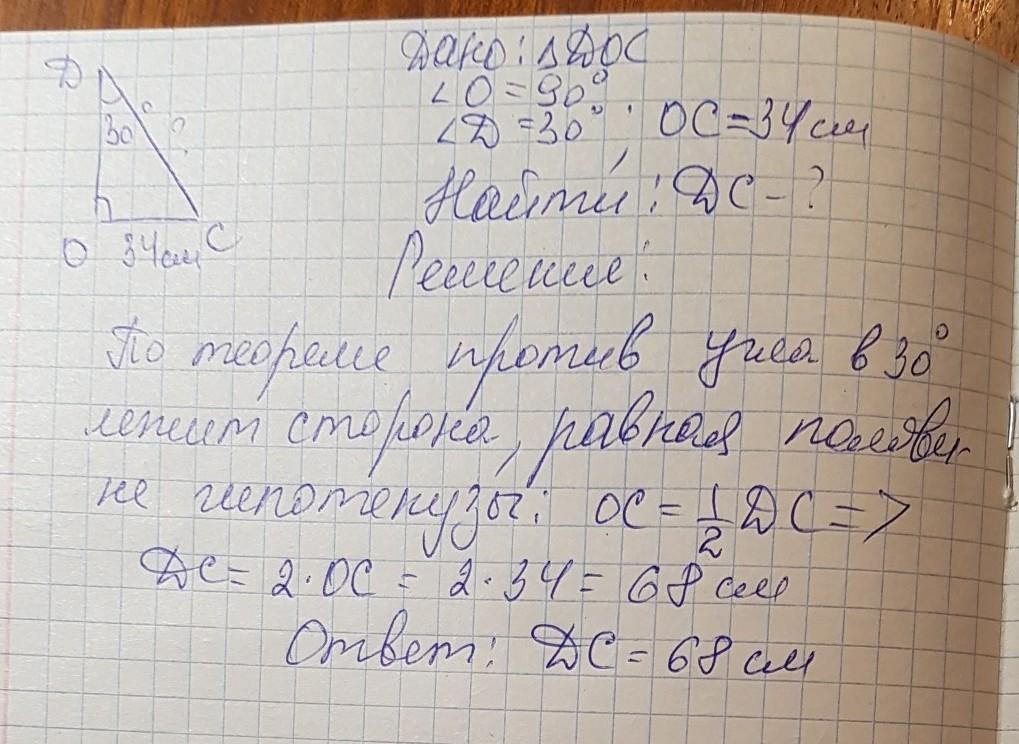 D
30°
?
O 34см C
Дано: △DOC
∠O = 90°
∠D = 30°; OC = 34 см
Найти: DC - ?
Решение:
По теореме против угла в 30°
лежит сторона, равная полови-
не гипотенузы: OC = 1/2 DC =>
DC = 2·OC = 2·34 = 68 см
Ответ: DC = 68 см